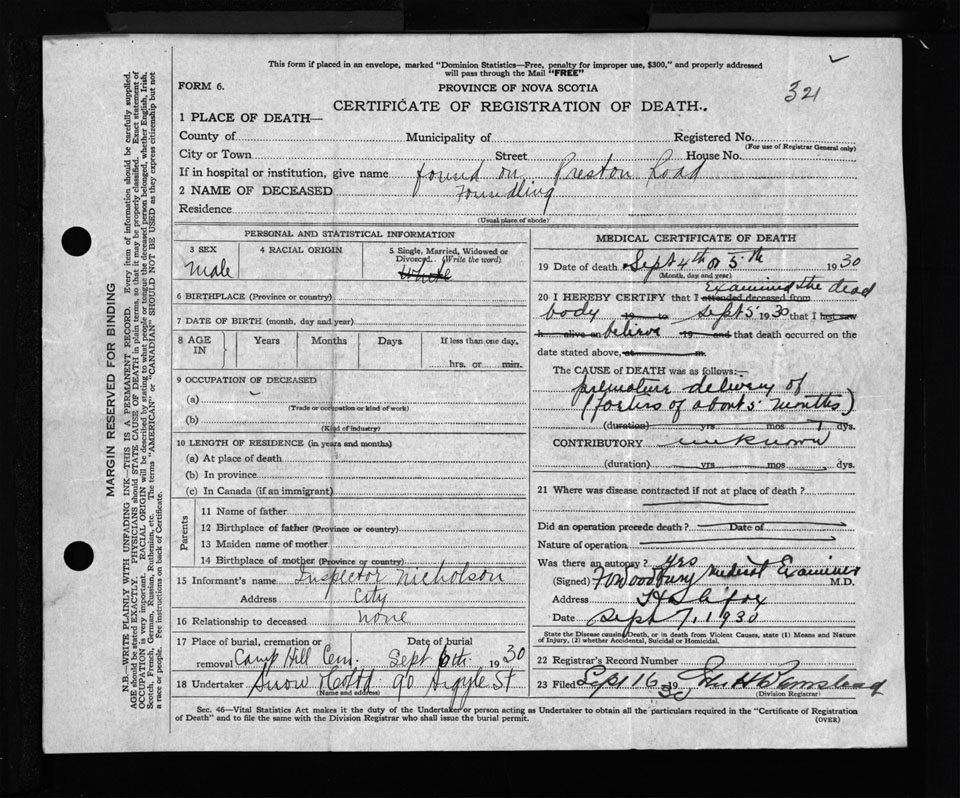 This form if placed in an envelope, marked "Dominion Statistics—Free, penalty for improper use, $300," and properly addressed
will pass through the Mail "FREE"
321
FORM 6.
PROVINCE OF NOVA SCOTIA
CERTIFICATE OF REGISTRATION OF DEATH.
1 PLACE OF DEATH—
County of Municipality of Registered No.
(For use of Registrar General only)
City or Town Street House No.
If in hospital or institution, give name found on Preston Road
2 NAME OF DECEASED Foundling
Residence
(Usual place of abode)
MARGIN RESERVED FOR BINDING
N.B.—WRITE PLAINLY WITH UNFADING INK—THIS IS A PERMANENT RECORD. Every item of information should be carefully supplied.
AGE should be stated EXACTLY. PHYSICIANS should STATE CAUSE OF DEATH in plain terms, so that it may be properly classified. Exact statement of
OCCUPATION is very important. RACIAL ORIGIN will be described by stating to what people or tongue the deceased person belonged, whether English, Irish,
Scotch, French, German, Russian, Ruthenian, etc. The terms "AMERICAN" or "CANADIAN" SHOULD NOT BE USED as they express citizenship but not
a race or people. Fee instructions on back of Certificate.
PERSONAL AND STATISTICAL INFORMATION
3 SEX 4 RACIAL ORIGIN 5 Single, Married, Widowed or
Divorced. (Write the word)
Male White
6 BIRTHPLACE (Province or country)
7 DATE OF BIRTH (month, day and year)
8 AGE IN Years Months Days If less than one day,
hrs. or min.
9 OCCUPATION OF DECEASED
(a)
(Trade or occupation or kind of work)
(b)
(Kind of industry)
10 LENGTH OF RESIDENCE (in years and months)
(a) At place of death
(b) In province
(c) In Canada (if an immigrant)
Parents
11 Name of father
12 Birthplace of father (Province or country)
13 Maiden name of mother
14 Birthplace of mother (Province or country)
15 Informant's name Inspector Nicholson
Address City
16 Relationship to deceased none
17 Place of burial, cremation or Date of burial
removal Camp Hill Cem. Sept 6th 1930
18 Undertaker Snow & Co Ltd 90 Argyle St
(Name and address)
MEDICAL CERTIFICATE OF DEATH
19 Date of death Sept 4th or 5th 1930
(Month, day and year)
Examined the dead
20 I HEREBY CERTIFY that I attended deceased from
body 19 to Sept 5 1930 that I last saw
h alive on believe 19 and that death occurred on the
date stated above, at m.
The CAUSE of DEATH was as follows:—
premature delivery of
(foetus of about 5 months)
(duration) yrs mos dys.
CONTRIBUTORY unknown
(duration) yrs mos dys.
21 Where was disease contracted if not at place of death?
Did an operation precede death? Date of
Nature of operation
Was there an autopsy? Yrs
(Signed) Woodbury Medical Examiner M.D.
Address Halifax
Date Sept 7, 1930
State the Disease causing Death, or in death from Violent Causes, state (1) Means and Nature
of Injury, (2) whether Accidental, Suicidal or Homicidal.
22 Registrar's Record Number
23 Filed Sept 16 1930
(Division Registrar)
Sec. 46—Vital Statistics Act makes it the duty of the Undertaker or person acting as Undertaker to obtain all the particulars required in the "Certificate of Registration
of Death" and to file the same with the Division Registrar who shall issue the burial permit. (OVER)